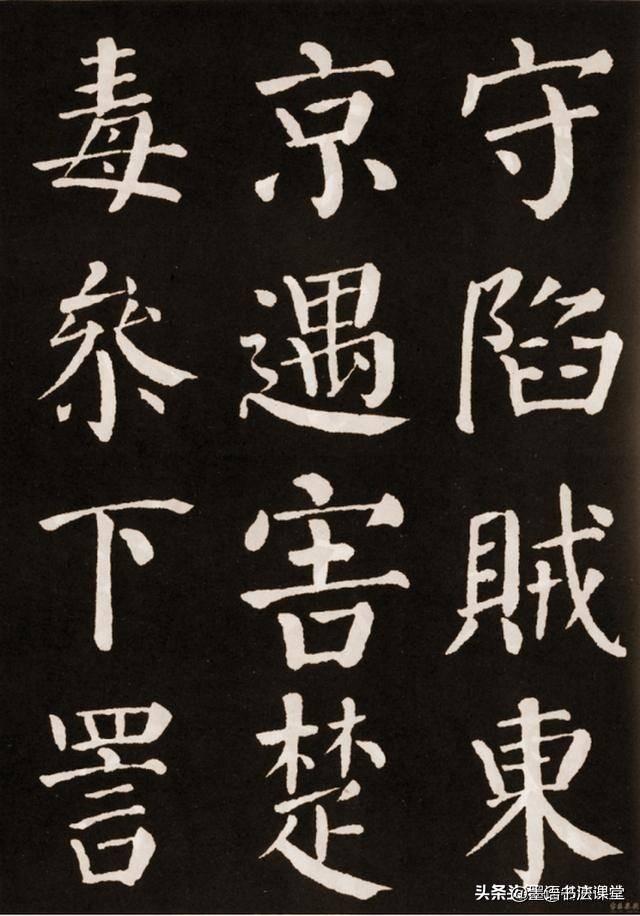 守陷賊東
京遇害楚
毒參下詈
头条 @墨语书法课堂